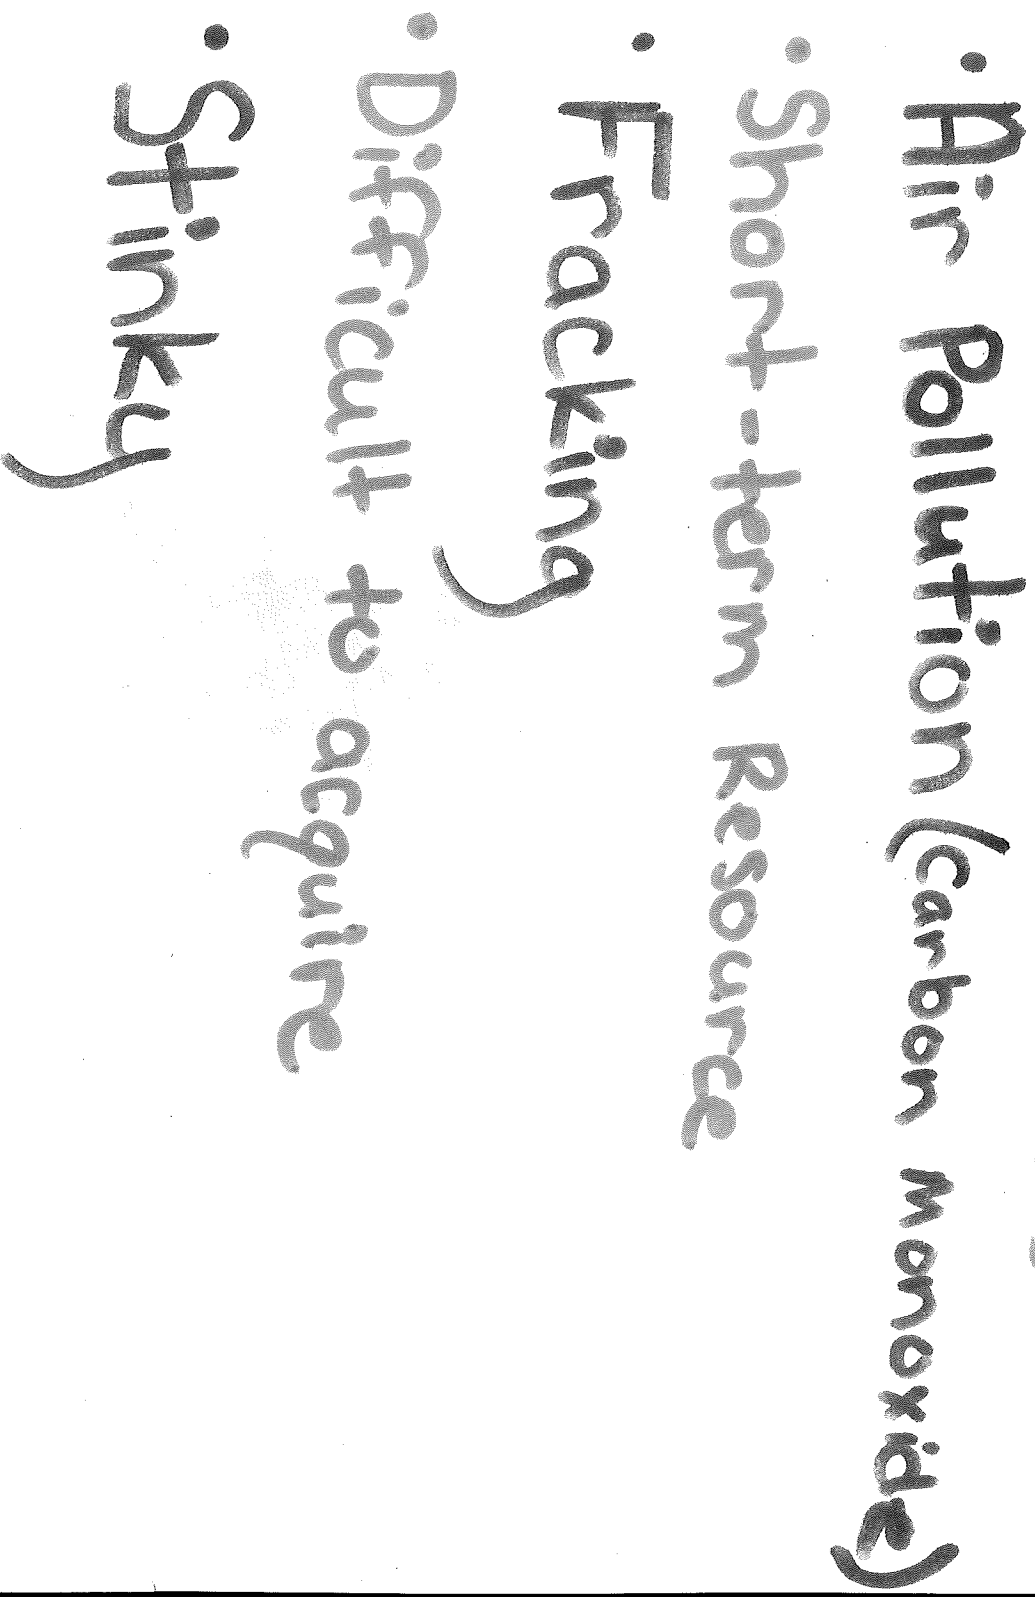 • Air Pollution (carbon monoxide)
• Short-term Resource
• Fracking
• Difficult to acquire
• Stinky